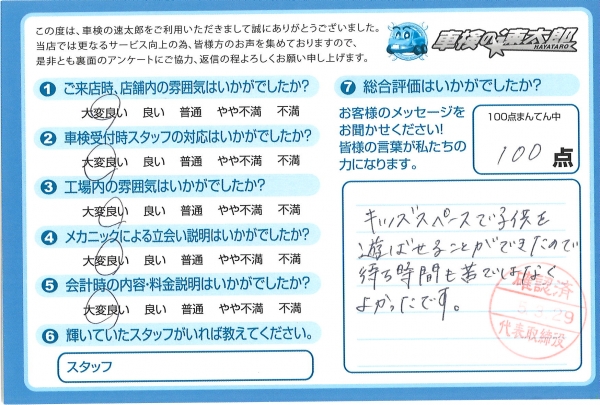 この度は、車検の速太郎をご利用いただきまして誠にありがとうございました。
当店では更なるサービス向上の為、皆様方のお声を集めておりますので、
是非とも裏面のアンケートにご協力、返信の程よろしくお願い申し上げます。
車検の速太郎
HAYATARO
1 ご来店時、店舗内の雰囲気はいかがでしたか?
大変良い 良い 普通 やや不満 不満
2 車検受付時スタッフの対応はいかがでしたか?
大変良い 良い 普通 やや不満 不満
3 工場内の雰囲気はいかがでしたか?
大変良い 良い 普通 やや不満 不満
4 メカニックによる立会い説明はいかがでしたか?
大変良い 良い 普通 やや不満 不満
5 会計時の内容・料金説明はいかがでしたか?
大変良い 良い 普通 やや不満 不満
6 輝いていたスタッフがいれば教えてください。
スタッフ
7 総合評価はいかがでしたか?
お客様のメッセージを
お聞かせください!
皆様の言葉が私たちの
力になります。
100点まんてん中
100点
キッズスペースで子供を
遊ばせることができたので
待ち時間も苦ではなく
よかったです。
確認済
3.29
代表取締役